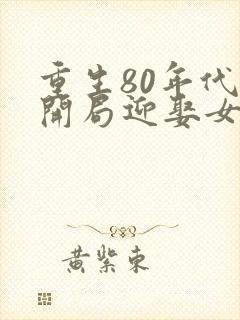 重生80年代
開局迎娶女
黄紫東